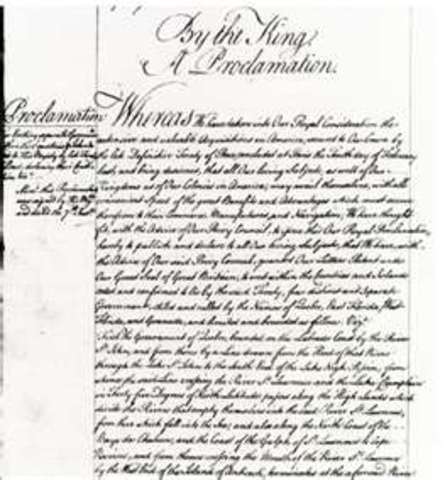 By the King,
A Proclamation.
Proclamation
Whereas We have taken into Our Royal Consideration the
extensive and valuable Acquisitions in America, secured to Our Crown by
the late Definitive Treaty of Peace, concluded at Paris the Tenth day of February
last, and being desirous, that all Our loving Subjects, as well of Our
Kingdoms as of Our Colonies in America, may avail themselves, with all
convenient Speed, of the great Benefits and Advantages which must accrue
therefrom to their Commerce, Manufactures and Navigation; We have thought
fit, with the Advice of Our Privy Council, to issue this Our Royal Proclamation,
hereby to publish and declare to all Our loving Subjects, that We have, with
the Advice of Our said Privy Council, granted Our Letters Patent under
Our Great Seal of Great Britain, to erect within the Countries and Islands
ceded and confirmed to Us by the said Treaty, four distinct and separate
Governments, stiled and called by the Names of Quebec, East Florida, West
Florida, and Grenada, and limited and bounded as follows; Viz.
First the Government of Quebec, bounded on the Labrador Coast by the River
St. John, and from thence by a Line drawn from the Head of that River
through the Lake St. John to the South End of the Lake Nigh Pissin; from
whence the said Line crossing the River St. Lawrence and the Lake Champlain
in Forty five Degrees of North Latitude, passes along the High Lands which
divide the Rivers that empty themselves into the said River St. Lawrence,
from those which fall into the Sea; and also along the North Coast of the
Baye des Chaleurs, and the Coast of the Gulph of St. Lawrence to Cape
Rosieres, and from thence crossing the Mouth of the River St. Lawrence
by the West End of the Island of Anticosti, terminates at the aforesaid River